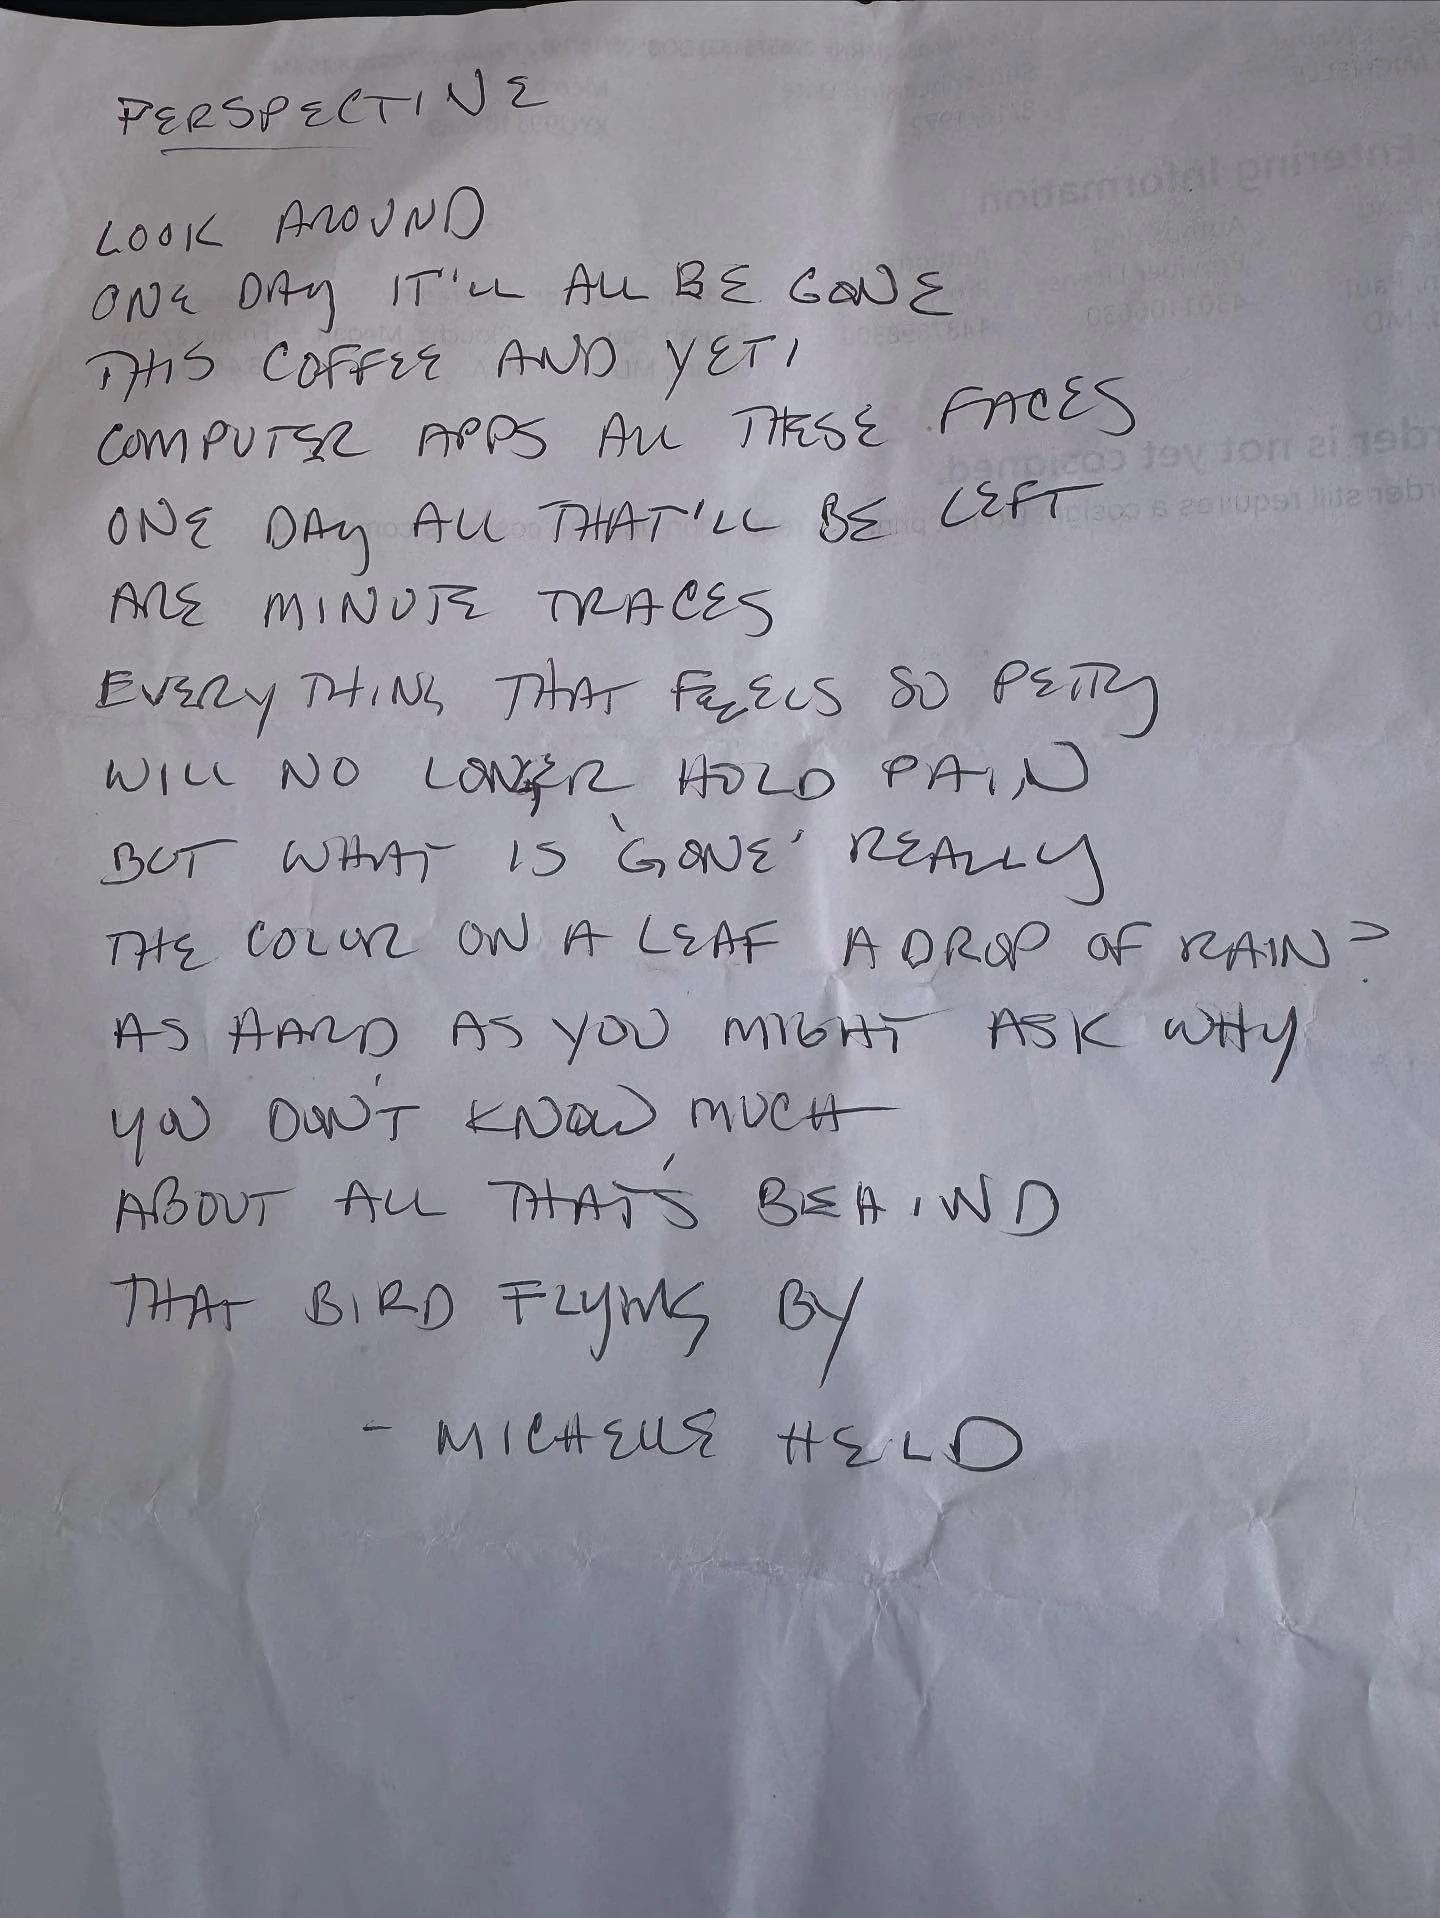 PERSPECTIVE
LOOK AROUND
ONE DAY IT'LL ALL BE GONE
THIS COFFEE AND YETI
COMPUTER APPS ALL THESE FACES
ONE DAY ALL THAT'LL BE LEFT
ARE MINUTE TRACES
EVERYTHING THAT FEELS SO PETTY
WILL NO LONGER HOLD PAIN
BUT WHAT IS 'GONE' REALLY
THE COLOR ON A LEAF A DROP OF RAIN?
AS HARD AS YOU MIGHT ASK WHY
YOU DON'T KNOW MUCH
ABOUT ALL THAT'S BEHIND
THAT BIRD FLYING BY
- MICHELLE HELD